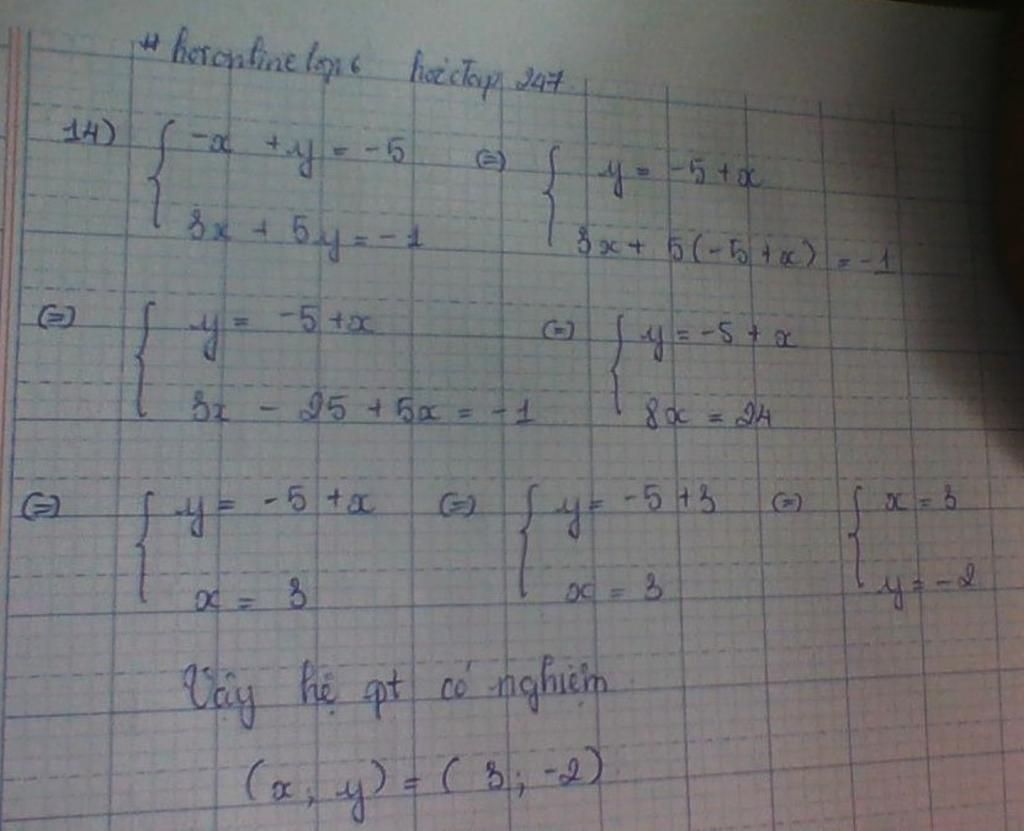 # heronlinelop6 hoctap 247
14) { -x + y = -5 (=) { y = -5 + x
3x + 5y = -1 3x + 5(-5 + x) = -1
(=) { y = -5 + x (=) { y = -5 + x
3x - 25 + 5x = -1 8x = 24
(=) { y = -5 + x (=) { y = -5 + 3 (=) { x = 3
x = 3 x = 3 y = -2
Vậy hệ pt có nghiệm
(x; y) = (3; -2)